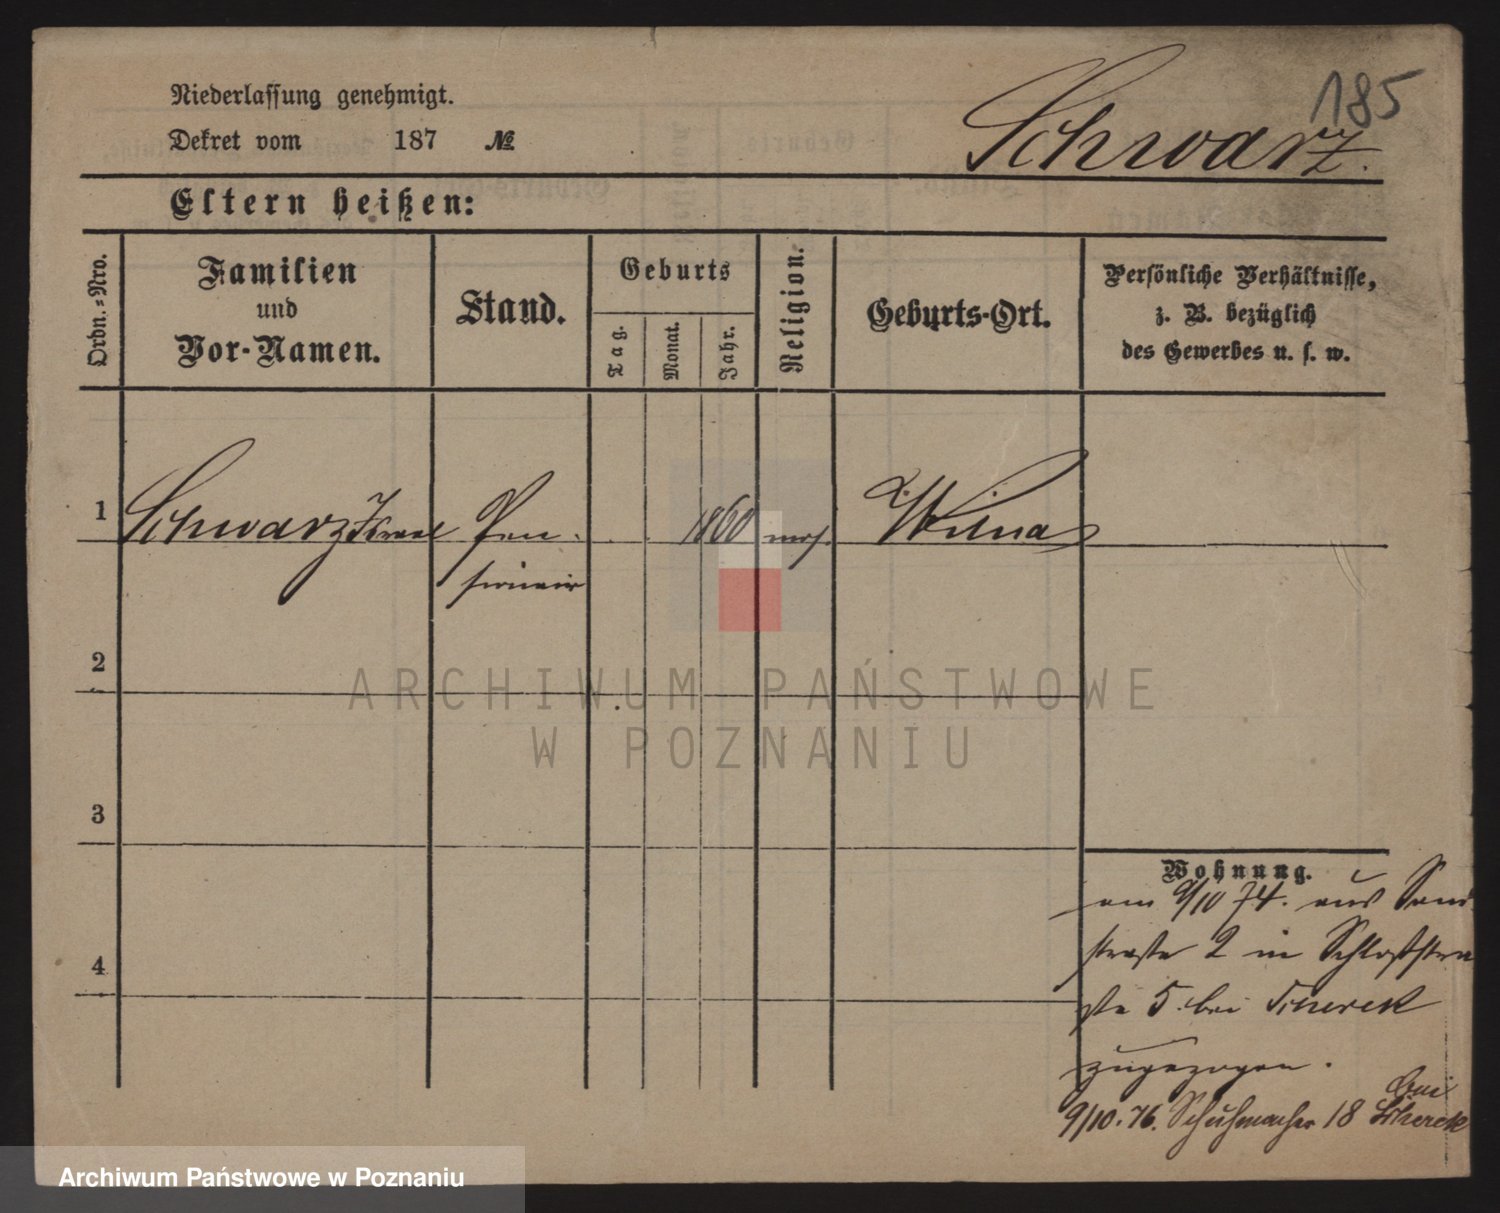 185
Niederlassung genehmigt.
Dekret vom 187 №
Schwarz.
Eltern heißen:
Ordn.=Nro.
Familien
und
Vor-Namen.
Stand.
Geburts
Tag.
Monat.
Jahr.
Religion.
Geburts-Ort.
Persönliche Verhältnisse,
z. B. bezüglich
des Gewerbes u. s. w.
1 Schwarz Israel Pen- 1860 mos. Wilna
sionair
2
ARCHIWUM PAŃSTWOWE
W POZNANIU
3
Wohnung.
am 9/10 74. aus Sand
straße 2 in Schloßstra
4
ße 5. bei
zugezogen.
bei
9/10. 76. Schuhmacher 18
Archiwum Państwowe w Poznaniu